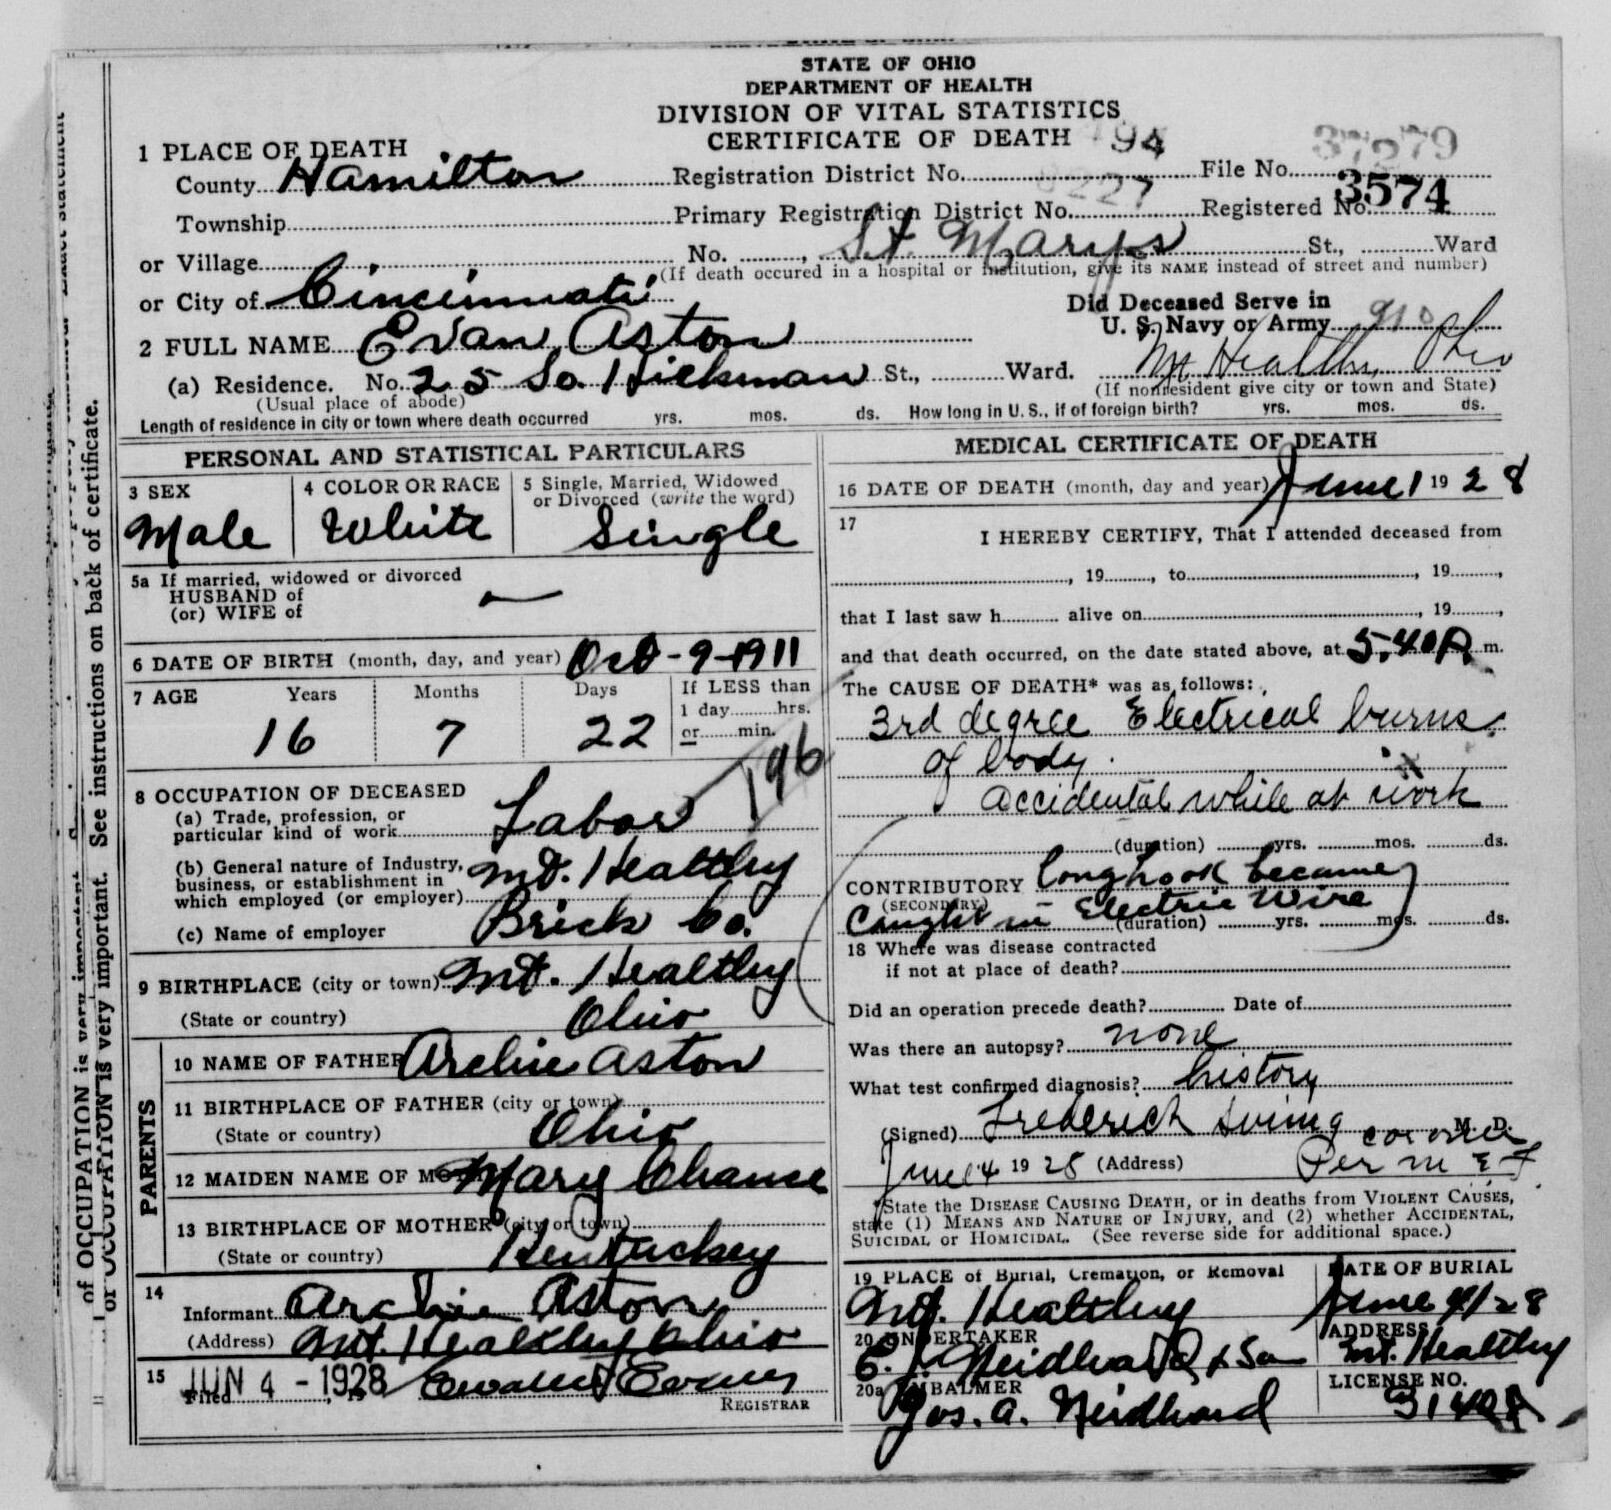 STATE OF OHIO
DEPARTMENT OF HEALTH
DIVISION OF VITAL STATISTICS
CERTIFICATE OF DEATH
1 PLACE OF DEATH
County Hamilton Registration District No. 494 File No. 37279
Township Primary Registration District No. 8227 Registered No. 3574
or Village No. , St. Marys St., Ward
(If death occured in a hospital or institution, give its NAME instead of street and number)
or City of Cincinnati
Did Deceased Serve in
U. S. Navy or Army no
2 FULL NAME Evan Aston
(a) Residence. No. 25 So. Hickman St., Ward. Mt Healthy, Ohio
(Usual place of abode) (If nonresident give city or town and State)
Length of residence in city or town where death occurred yrs. mos. ds. How long in U. S., if of foreign birth? yrs. mos. ds.
PERSONAL AND STATISTICAL PARTICULARS
3 SEX 4 COLOR OR RACE 5 Single, Married, Widowed
or Divorced (write the word)
Male White Single
5a If married, widowed or divorced
HUSBAND of
(or) WIFE of —
6 DATE OF BIRTH (month, day, and year) Oct-9-1911
7 AGE Years Months Days If LESS than
1 day hrs.
or min.
16 7 22
196
8 OCCUPATION OF DECEASED
(a) Trade, profession, or
particular kind of work Labor
(b) General nature of Industry,
business, or establishment in
which employed (or employer) Mt. Healthy
(c) Name of employer Brick Co.
9 BIRTHPLACE (city or town) Mt. Healthy
(State or country) Ohio
PARENTS
10 NAME OF FATHER Archie Aston
11 BIRTHPLACE OF FATHER (city or town)
(State or country) Ohio
12 MAIDEN NAME OF MOTHER Mary Chance
13 BIRTHPLACE OF MOTHER (city or town)
(State or country) Kentuckey
14
Informant Archie Aston
(Address) Mt. Healthy Ohio
15 JUN 4 - 1928
Filed , 19 Evans
REGISTRAR
MEDICAL CERTIFICATE OF DEATH
16 DATE OF DEATH (month, day and year) June 1 1928
17
I HEREBY CERTIFY, That I attended deceased from
, 19 , to , 19 ,
that I last saw h alive on , 19 ,
and that death occurred, on the date stated above, at 5:40 A. m.
The CAUSE OF DEATH* was as follows:
3rd degree Electrical burns
of body.
accidental while at work
(duration) yrs. mos. ds.
CONTRIBUTORY long hook became
(SECONDARY)
Caught in Electric Wire
(duration) yrs. mos. ds.
18 Where was disease contracted
if not at place of death?
Did an operation precede death? Date of
Was there an autopsy? none
What test confirmed diagnosis? history
(Signed) Frederick Swing M. D.
coroner
June 4 1928 (Address) Per M E F
*State the DISEASE CAUSING DEATH, or in deaths from VIOLENT CAUSES,
state (1) MEANS AND NATURE OF INJURY, and (2) whether ACCIDENTAL,
SUICIDAL or HOMICIDAL. (See reverse side for additional space.)
19 PLACE of Burial, Cremation, or Removal DATE OF BURIAL
Mt. Healthy June 4/28
20 UNDERTAKER ADDRESS
Neidhard & Son Mt. Healthy
20a EMBALMER LICENSE NO.
Jos. A. Neidhard
of OCCUPATION is very important. See instructions on back of certificate.